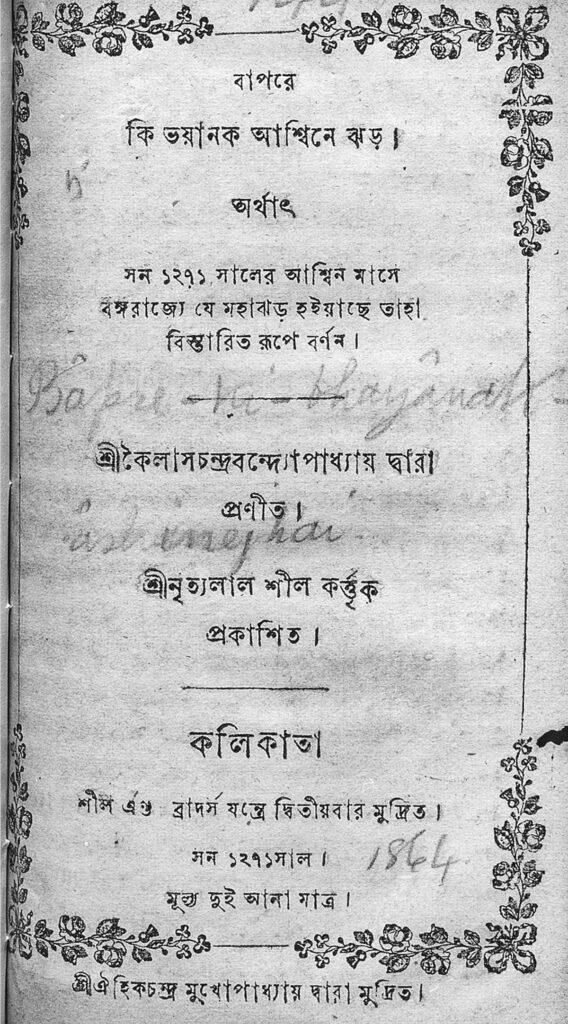 বাপরে
কি ভয়ানক আশ্বিনে ঝড়।
অর্থাৎ
সন ১২৭১ সালের আশ্বিন মাসে
বঙ্গরাজ্যে যে মহাঝড় হইয়াছে তাহা
বিস্তারিত রূপে বর্ণন।
Bâpre - ki - bhayânak -
শ্রীকৈলাসচন্দ্রবন্দ্যোপাধ্যায় দ্বারা
প্রণীত।
শ্রীনৃত্যলাল শীল কর্ত্তৃক
প্রকাশিত।
কলিকাতা
শীল এণ্ড ব্রাদর্স যন্ত্রে দ্বিতীয়বার মুদ্রিত।
সন ১২৭১সাল। 1864.
মূল্য দুই আনা মাত্র।
শ্রীঐহিকচন্দ্র মুখোপাধ্যায় দ্বারা মুদ্রিত।